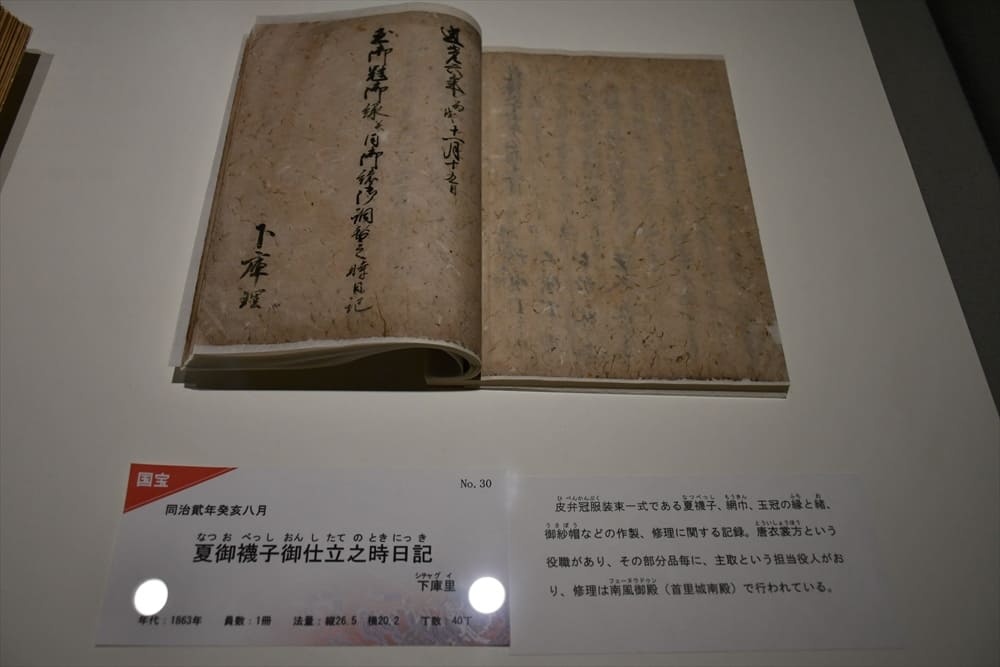 道光六年丙戌十一月十五日
之時日記
下庫理
国宝
No.30
同治貮年癸亥八月
なつ お べっし おん し たて の とき にっ き
夏御襪子御仕立之時日記
シチャグイ
下庫里
年代：1863年 員数：1冊 法量：縦26.5 横20.2 丁数：40丁
ひべんかんぶく なつべっし もうきん ふち お
皮弁冠服装束一式である夏襪子、網巾、玉冠の縁と緒、
うさぼう とういしょうほう
御紗帽などの作製、修理に関する記録。唐衣裳方という
役職があり、その部分品毎に、主取という担当役人がお
フェーヌウドゥン
り、修理は南風御殿（首里城南殿）で行われている。